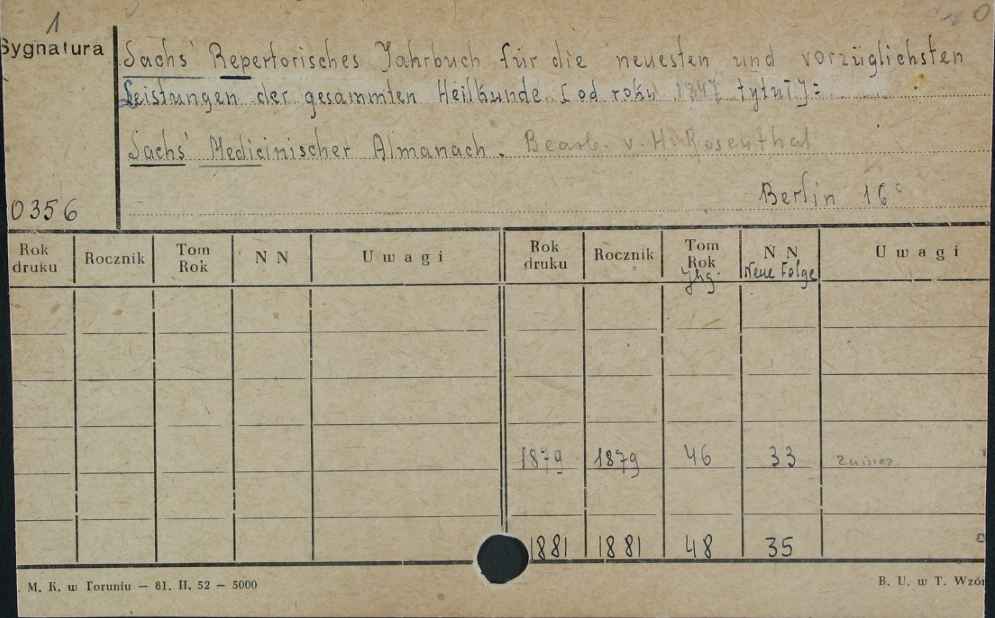 1
Sygnatura
Sachs' Repertorisches Jahrbuch für die neuesten und vorzüglichsten
Leistungen der gesammten Heilkunde [od roku 1847 tytuł]:
Sachs' Medicinischer Almanach. Bearb. v. H. Rosenthal
Berlin 16°
0356
Rok druku Rocznik Tom Rok N N Uwagi Rok druku Rocznik Tom Rok Jhg. N N Neue Folge Uwagi
1879 1879 46 33
1881 1881 48 35
M. K. w Toruniu — 81. II. 52 — 5000 B. U. w T. Wzór